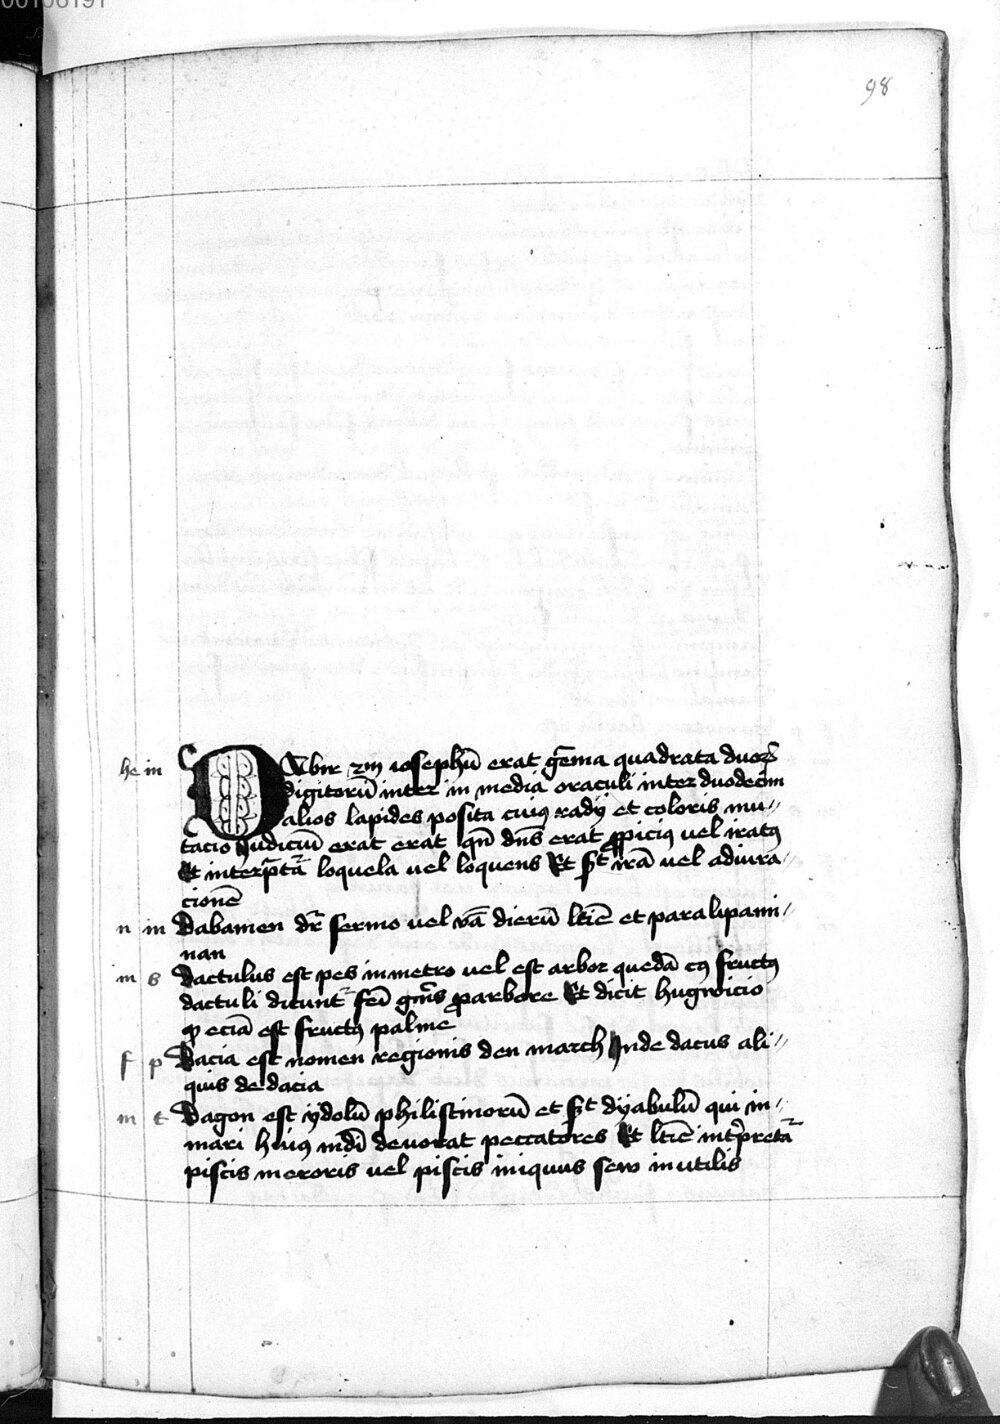 00106191
98
he in Dabir scdm iosephū erat gēma quadrata duorꝫ
digitorū inter in media oraculi inter duodecim
alios lapides posita cuiꝰ radij et coloris mu⸗
tacio Judiciū erat erat qn̄ dn̄s erat ꝓpiciꝰ vel iratꝰ
Et interp̄tat̄ loquela vel loquens Et sᷓt irā vel adiura⸗
cionē
n in Dabamen dr̄ sermo vel dierū lt̄iē et paralipami⸗
nan
m Dactulus est pes in metro vel est arbor quedā cꝰ fructꝰ
dactuli dicunt᷑ gn̄s ꝓ arbore Et dicit hugwicio
ꝙ eciā est fructꝰ palme
f p Dacia est nomen regionis den march Inde dacus ali⸗
quis de dacia
m t Dagon est ydolū philistinorū et sᷓt dyabulū qui in⸗
mari huiꝰ mdī devorat peccatores Et lt̄iē int̄p̄retat̄
piscis meroris vel piscis iniquus sew inutilis